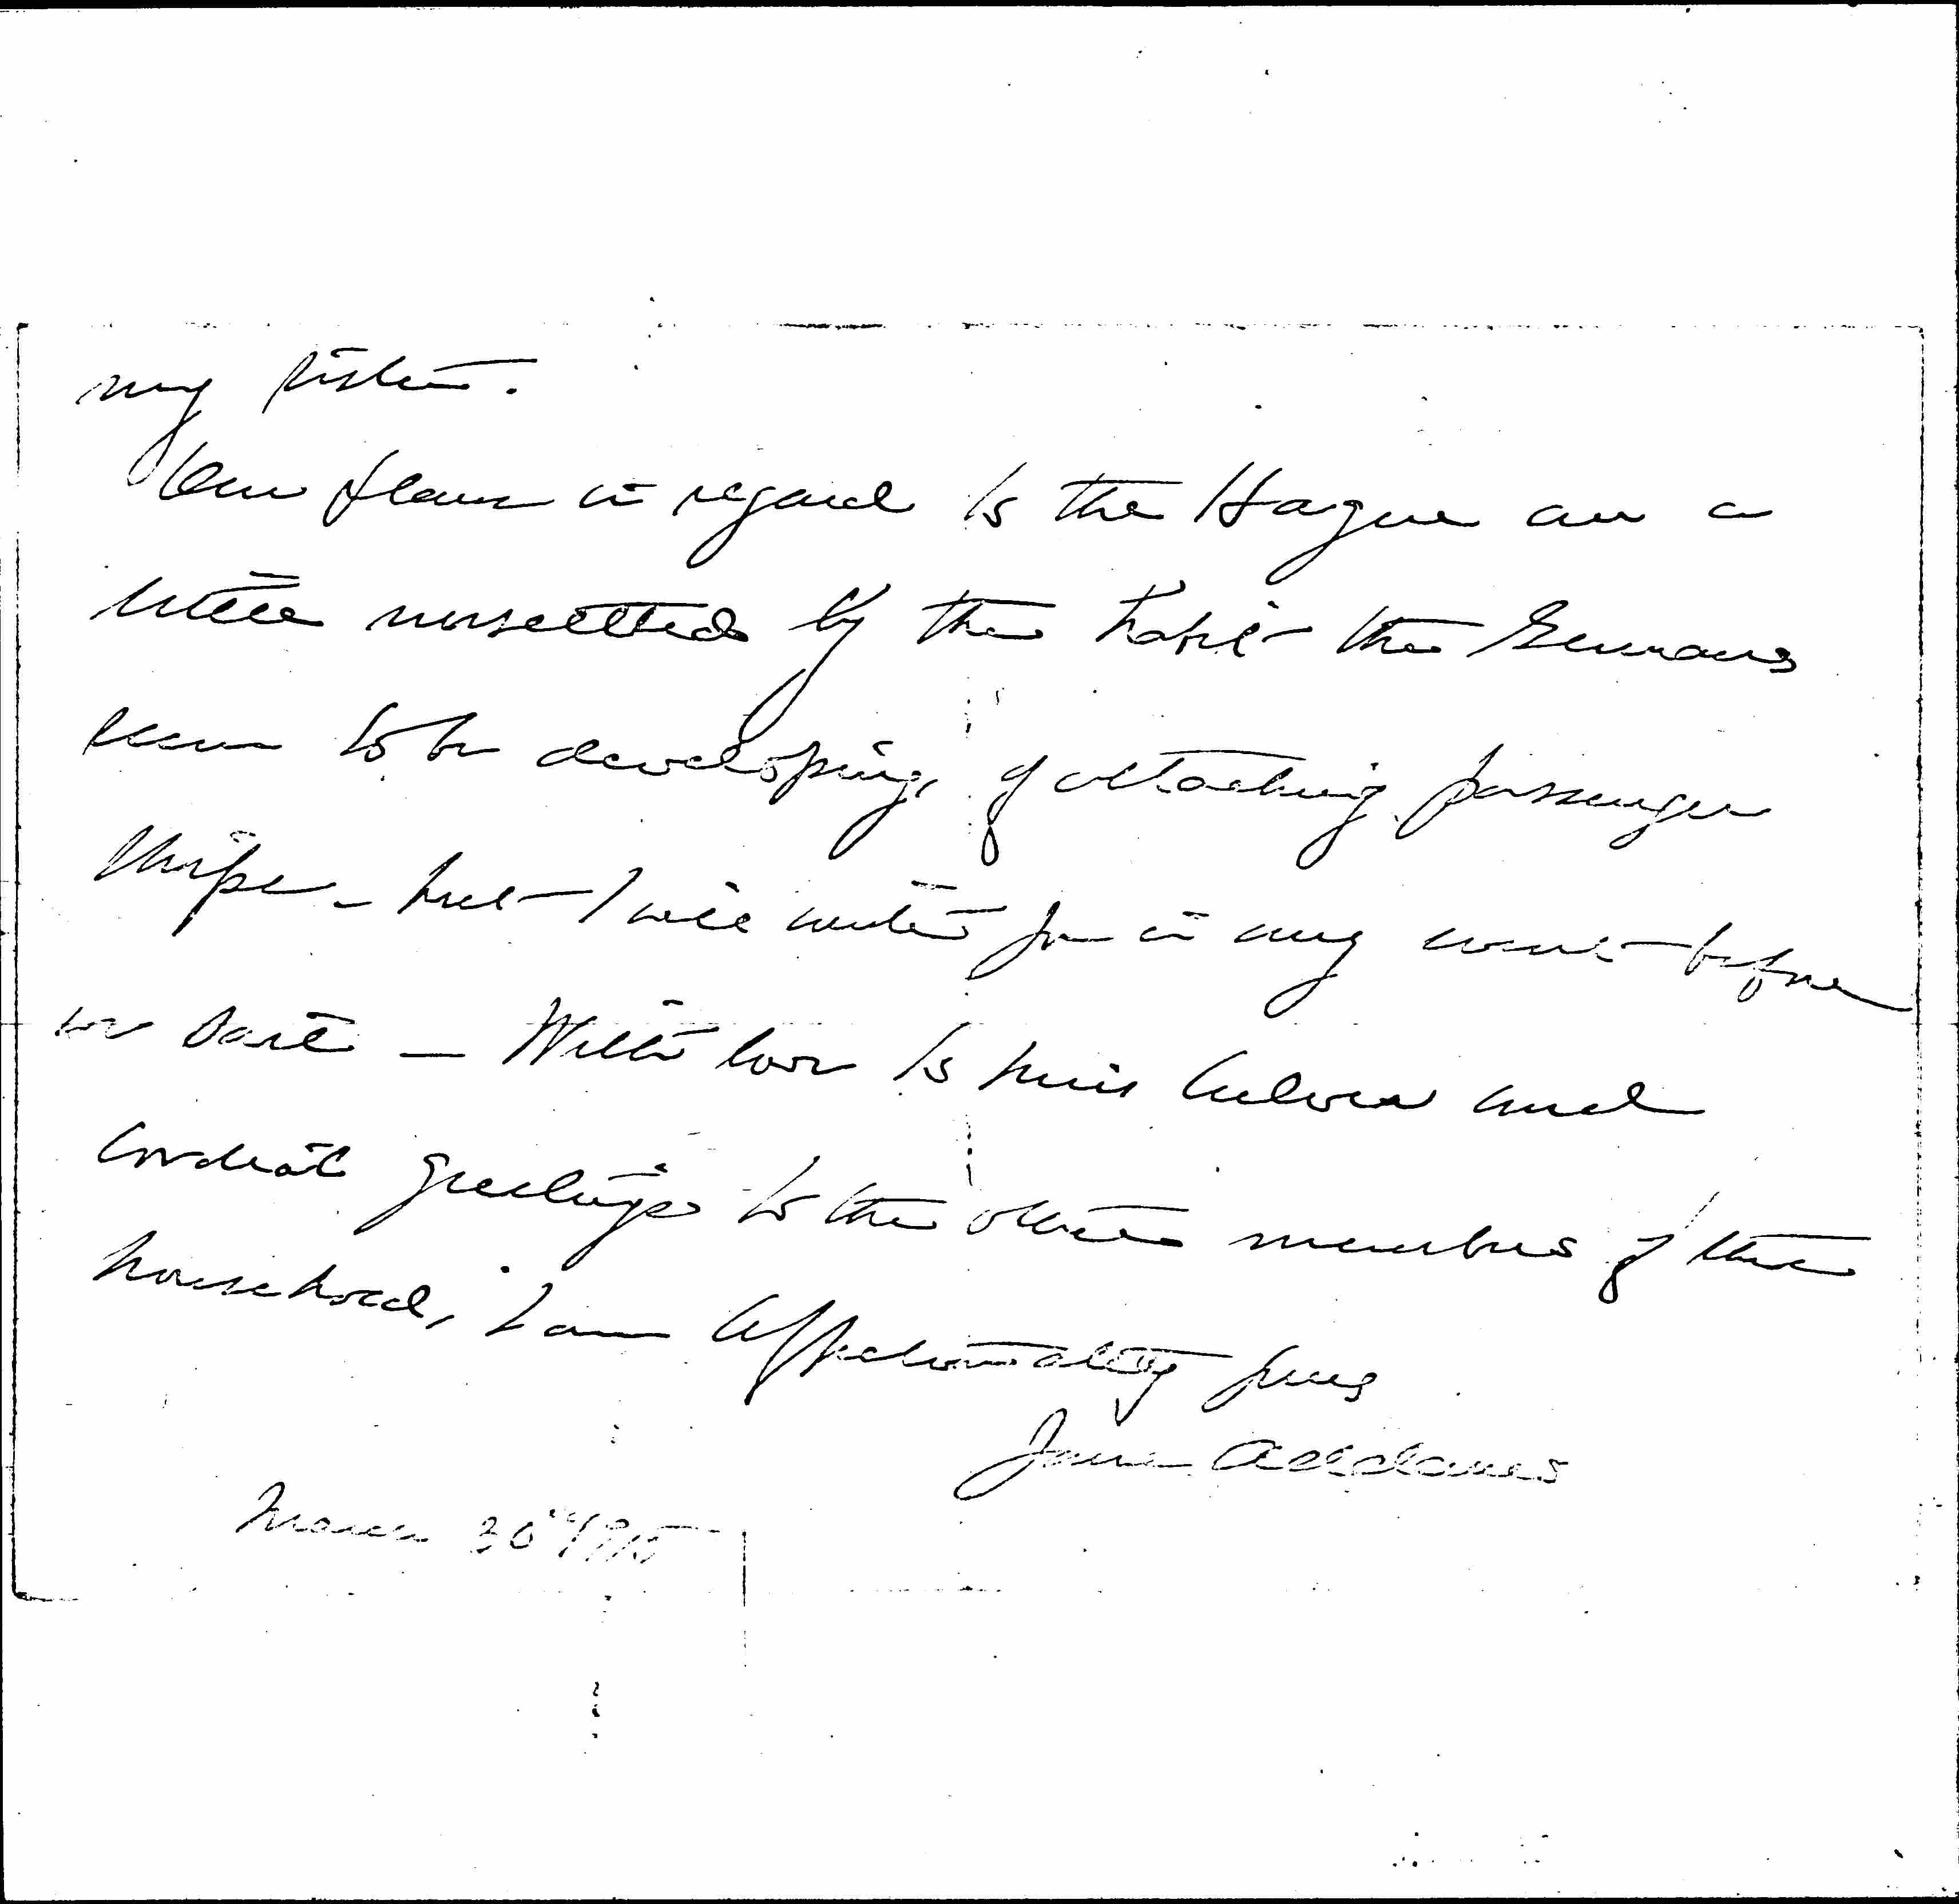 my sister.
Our plans in regard to the Hague are a
little unsettled by the habit the Germans
seem to be developing, of attacking passenger
ships - but I will write you in any event before
we sail — With love to Miss Culver and
cordial greetings to the other members of the
household, I am affectionately yours
Jane Addams
March 30" 1915